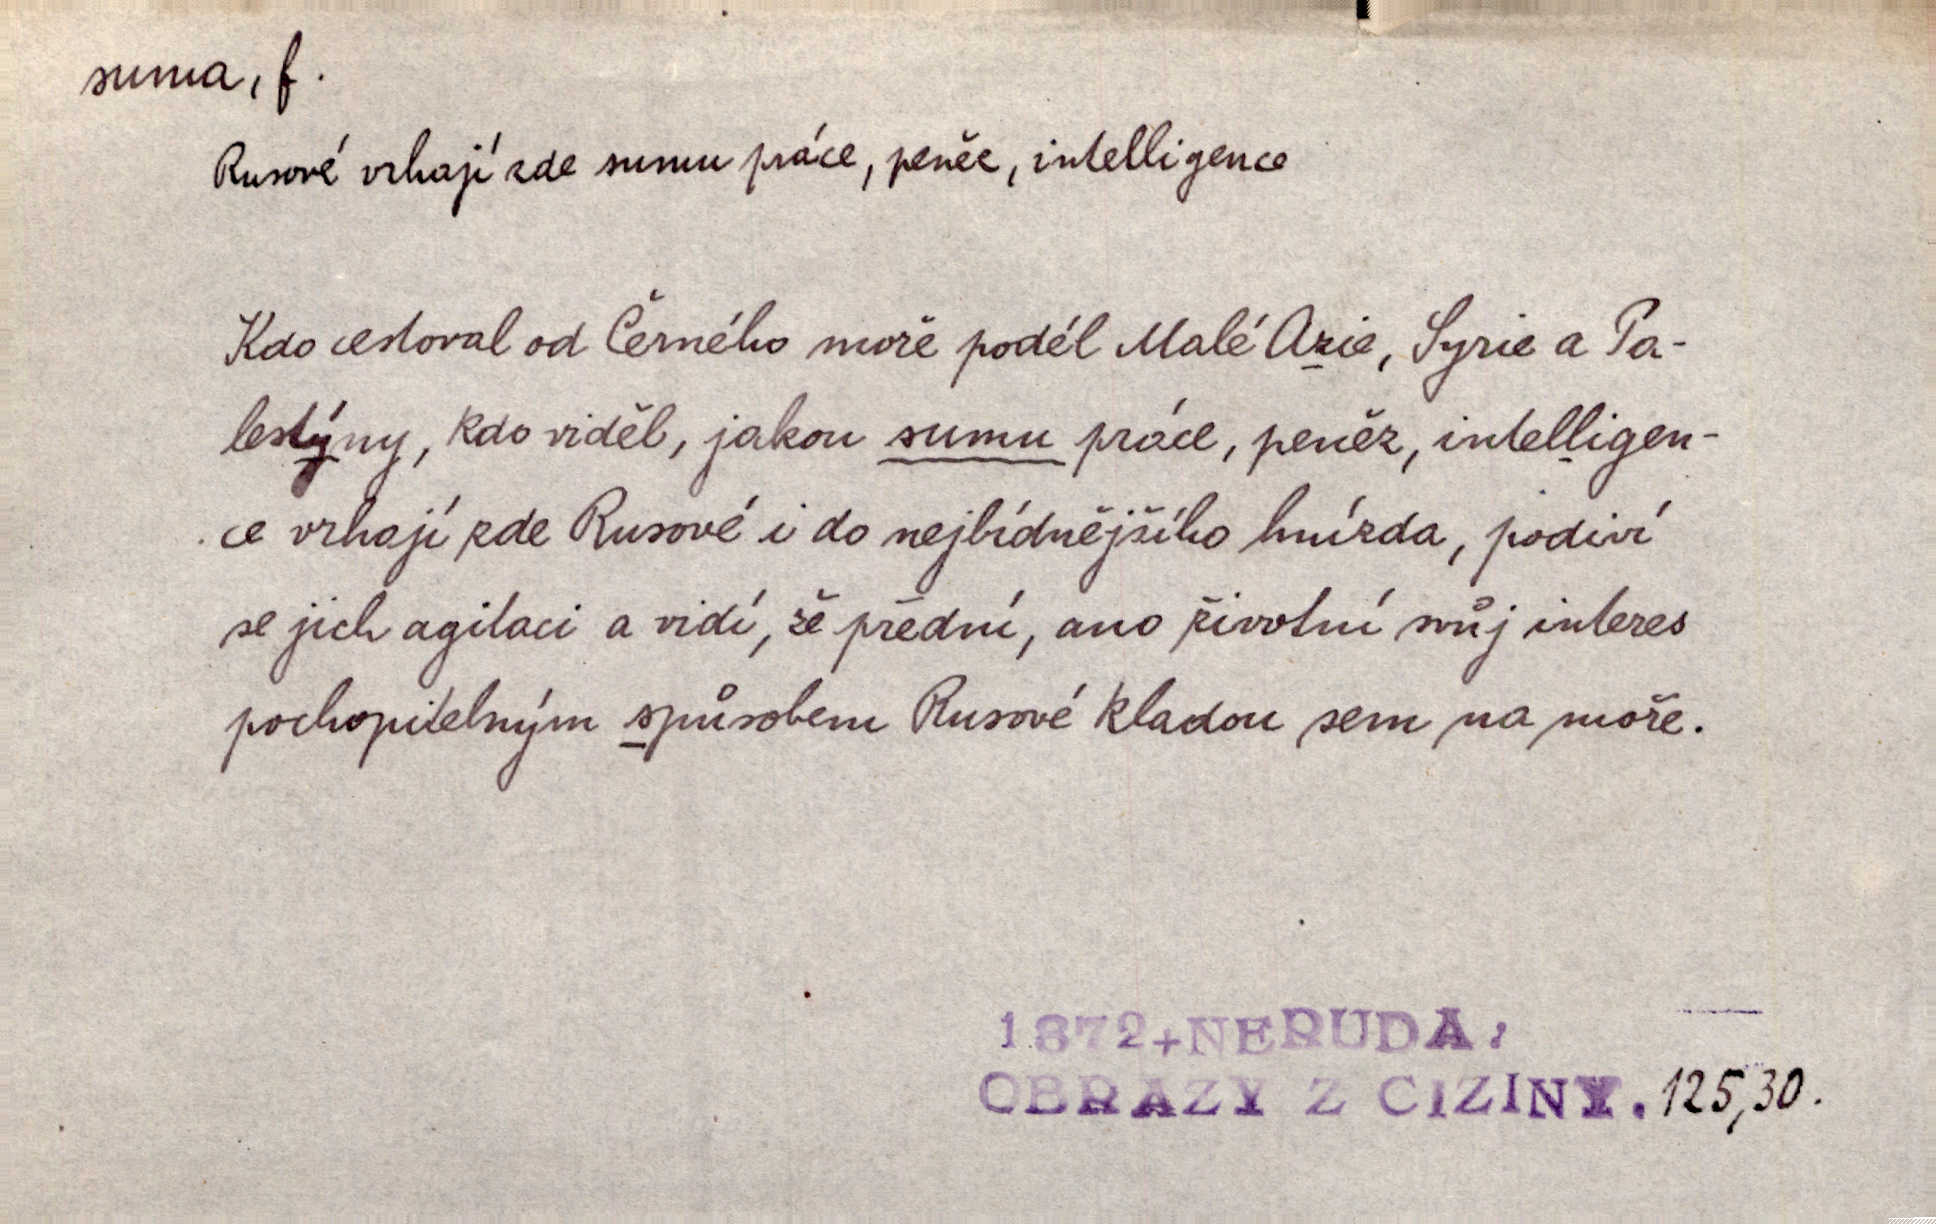 suma, f.
Rusové vrhají zde sumu práce, peněz, intelligence
Kdo cestoval od Černého moře podél Malé Azie, Syrie a Pa-
lestýny, kdo viděl, jakou sumu práce, peněz, intelligen-
ce vrhají zde Rusové i do nejbídnějšího hnízda, podiví
se jich agitaci a vidí, že přední, ano životní svůj interes
pochopitelným spůsobem Rusové kladou sem na moře.
1872+NERUDA:
OBRAZY Z CIZINY. 125,30.